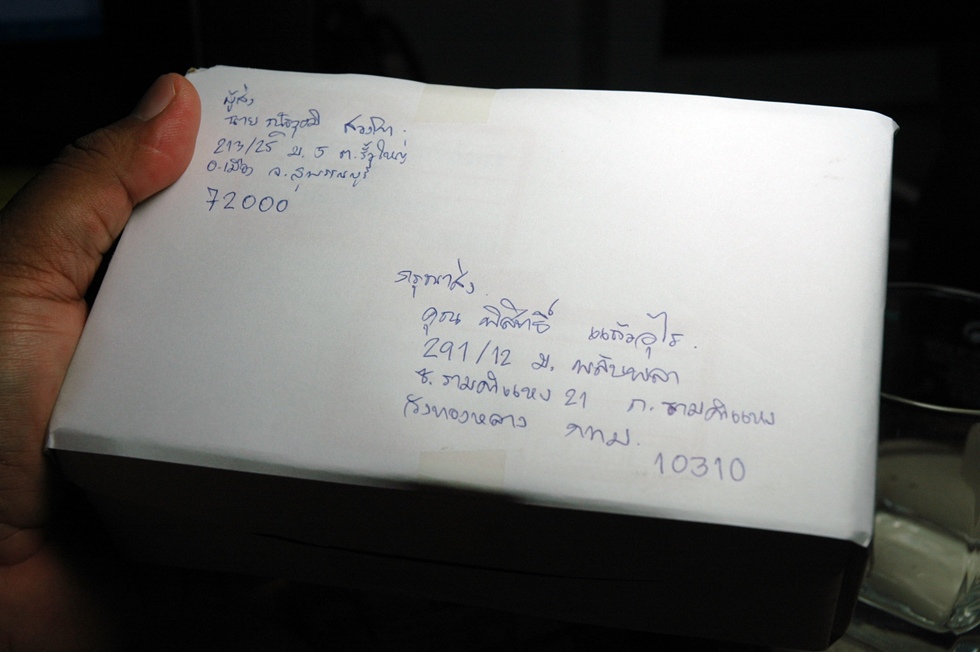 ผู้ส่ง
นาย
213/25 ม. 5 ต. รั้วใหญ่
อ.เมือง จ.สุพรรณบุรี
72000
กรุณาส่ง
คุณ พิสิทธิ์ แก้วอุไร.
291/12 ม. พลับพลา
ซ. รามคำแหง 21 ถ. รามคำแหง
วังทองหลาง กทม.
10310